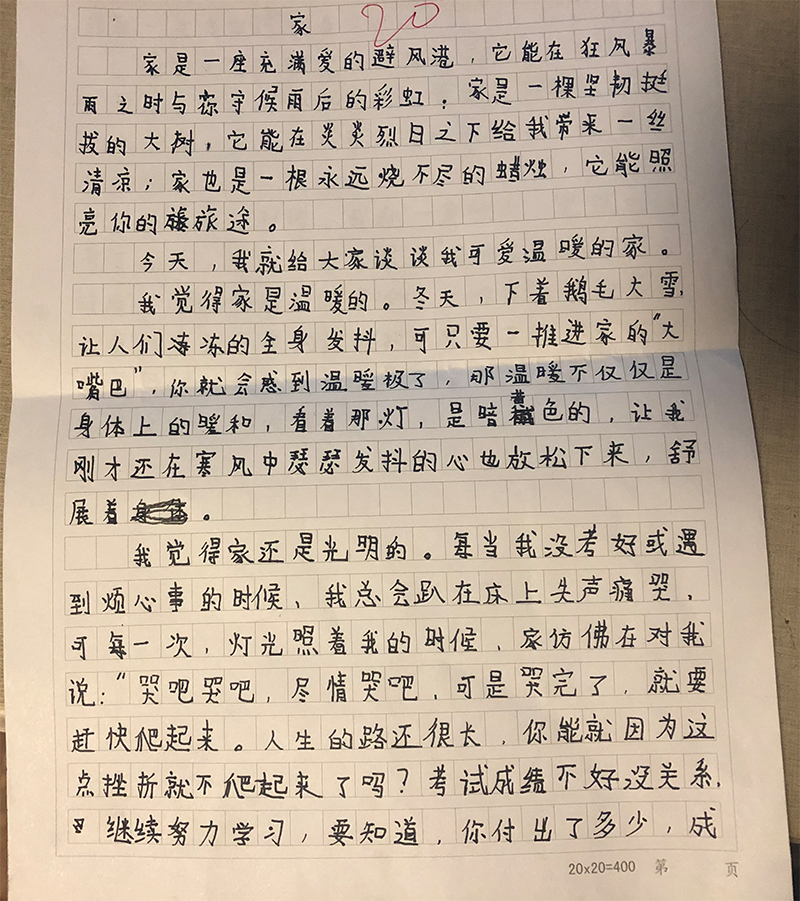 家
20
家是一座充满爱的避风港，它能在狂风暴
雨之时与你守候雨后的彩虹；家是一棵坚韧挺
拔的大树，它能在炎炎烈日之下给我带来一丝
清凉；家也是一根永远烧不尽的蜡烛，它能照
亮你的旅途。
今天，我就给大家谈谈我可爱温暖的家。
我觉得家是温暖的。冬天，下着鹅毛大雪，
让人们冻的全身发抖，可只要一推进家的“大
嘴巴”，你就会感到温暖极了，那温暖不仅仅是
身体上的暖和，看着那灯，是暗黄色的，让我
刚才还在寒风中瑟瑟发抖的心也放松下来，舒
展着。
我觉得家还是光明的。每当我没考好或遇
到烦心事的时候，我总会趴在床上失声痛哭，
可每一次，灯光照着我的时候，家仿佛在对我
说：“哭吧哭吧，尽情哭吧，可是哭完了，就要
赶快爬起来。人生的路还很长，你能就因为这
点挫折就不爬起来了吗？考试成绩不好没关系，
继续努力学习，要知道，你付出了多少，成
20×20=400 第 页